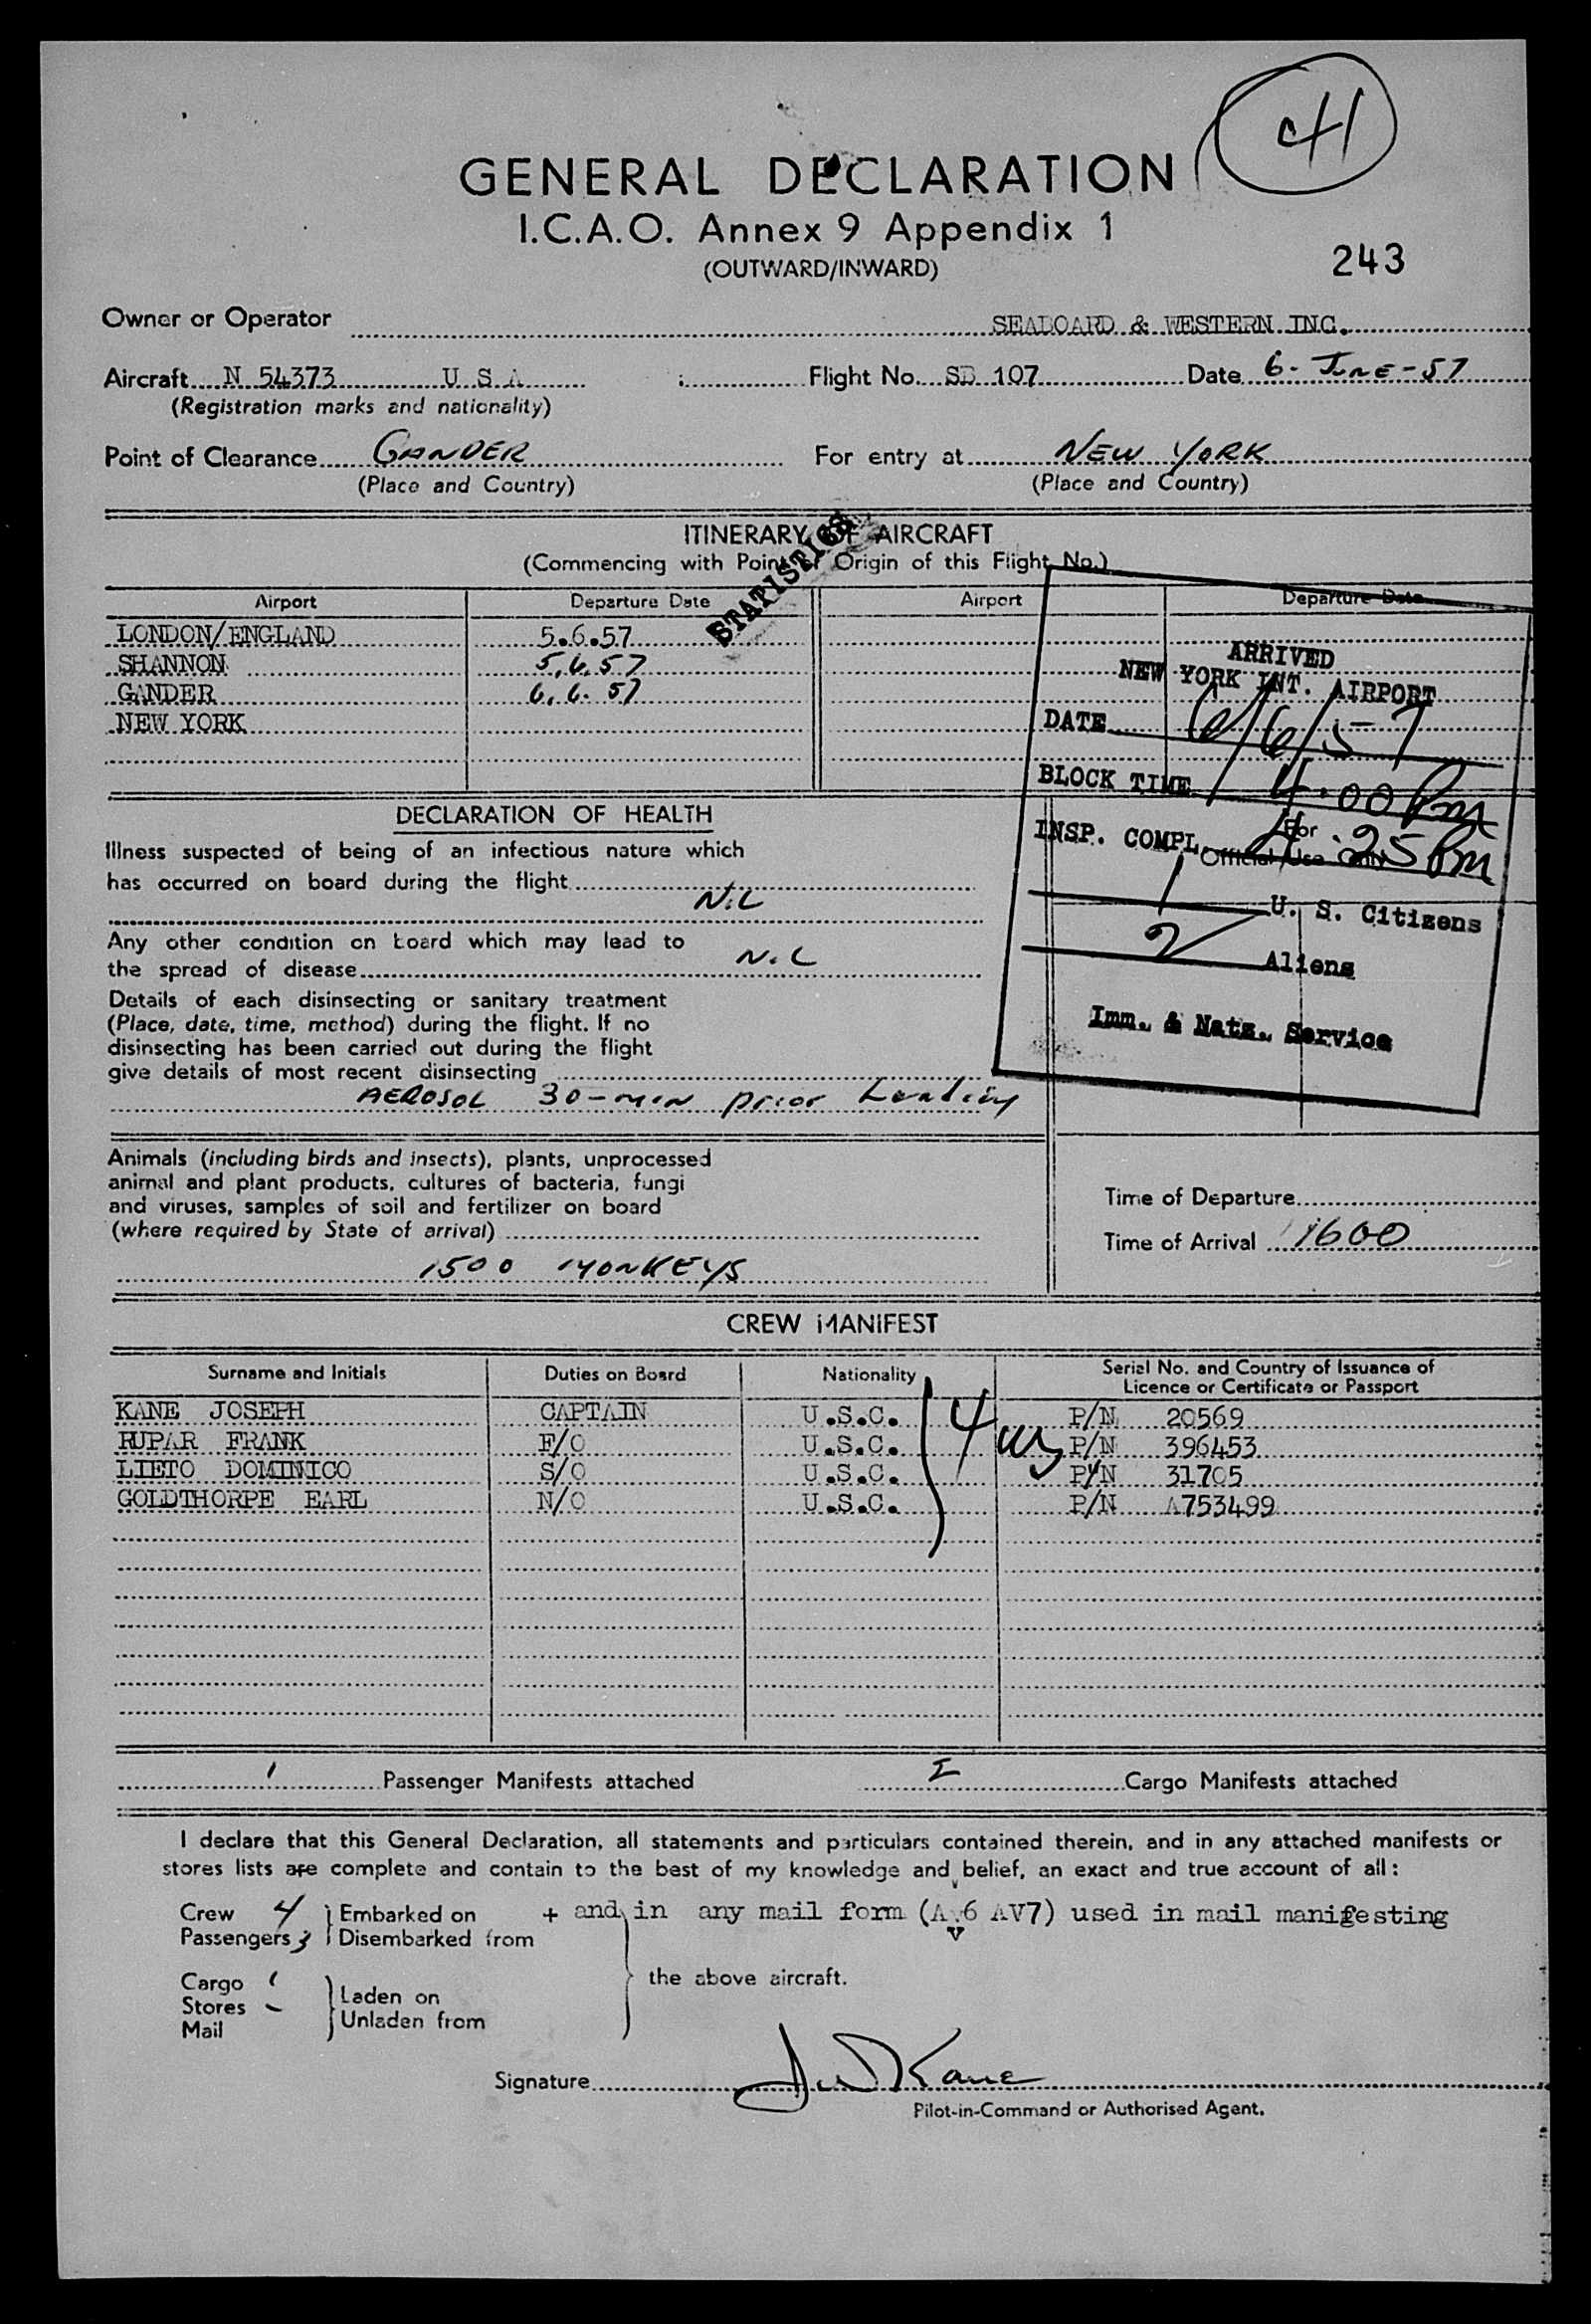 41
GENERAL DECLARATION
I.C.A.O. Annex 9 Appendix 1
(OUTWARD/INWARD)
243
Owner or Operator SEABOARD & WESTERN INC.
Aircraft N 54373 U S A Flight No. SB 107 Date 6-JUNE-57
(Registration marks and nationality)
Point of Clearance GANDER For entry at NEW YORK
(Place and Country) (Place and Country)
STATISTICS
ITINERARY OF AIRCRAFT
(Commencing with Point of Origin of this Flight No.)
Airport Departure Date Airport Departure Date
LONDON/ENGLAND 5.6.57
SHANNON 5.6.57
GANDER 6.6.57
NEW YORK
ARRIVED
NEW YORK INT. AIRPORT
DATE 6/6/57
BLOCK TIME 4.00 Pm
INSP. COMPL. 4.25 Pm
For
Official Use Only
1 U. S. Citizens
2 Aliens
Imm. & Natz. Service
DECLARATION OF HEALTH
Illness suspected of being of an infectious nature which
has occurred on board during the flight
NiL
Any other condition on board which may lead to
the spread of disease NiL
Details of each disinsecting or sanitary treatment
(Place, date, time, method) during the flight. If no
disinsecting has been carried out during the flight
give details of most recent disinsecting
AEROSOL 30-MIN prior Landing
Animals (including birds and insects), plants, unprocessed
animal and plant products, cultures of bacteria, fungi
and viruses, samples of soil and fertilizer on board
(where required by State of arrival)
1500 MONKEYS
Time of Departure
Time of Arrival 1600
CREW MANIFEST
Surname and Initials Duties on Board Nationality Serial No. and Country of Issuance of
Licence or Certificate or Passport
KANE JOSEPH CAPTAIN U.S.C. P/N 20569
RUPAR FRANK F/O U.S.C. P/N 396453
LIETO DOMINICO S/O U.S.C. P/N 31705
GOLDTHORPE EARL N/O U.S.C. P/N A753499
4
1 Passenger Manifests attached I Cargo Manifests attached
I declare that this General Declaration, all statements and particulars contained therein, and in any attached manifests or
stores lists are complete and contain to the best of my knowledge and belief, an exact and true account of all:
Crew 4 Embarked on + and in any mail form (AV6 AV7) used in mail manifesting
Passengers 3 Disembarked from
Cargo 1 the above aircraft.
Stores - Laden on
Mail Unladen from
Signature J W Kane
Pilot-in-Command or Authorised Agent.